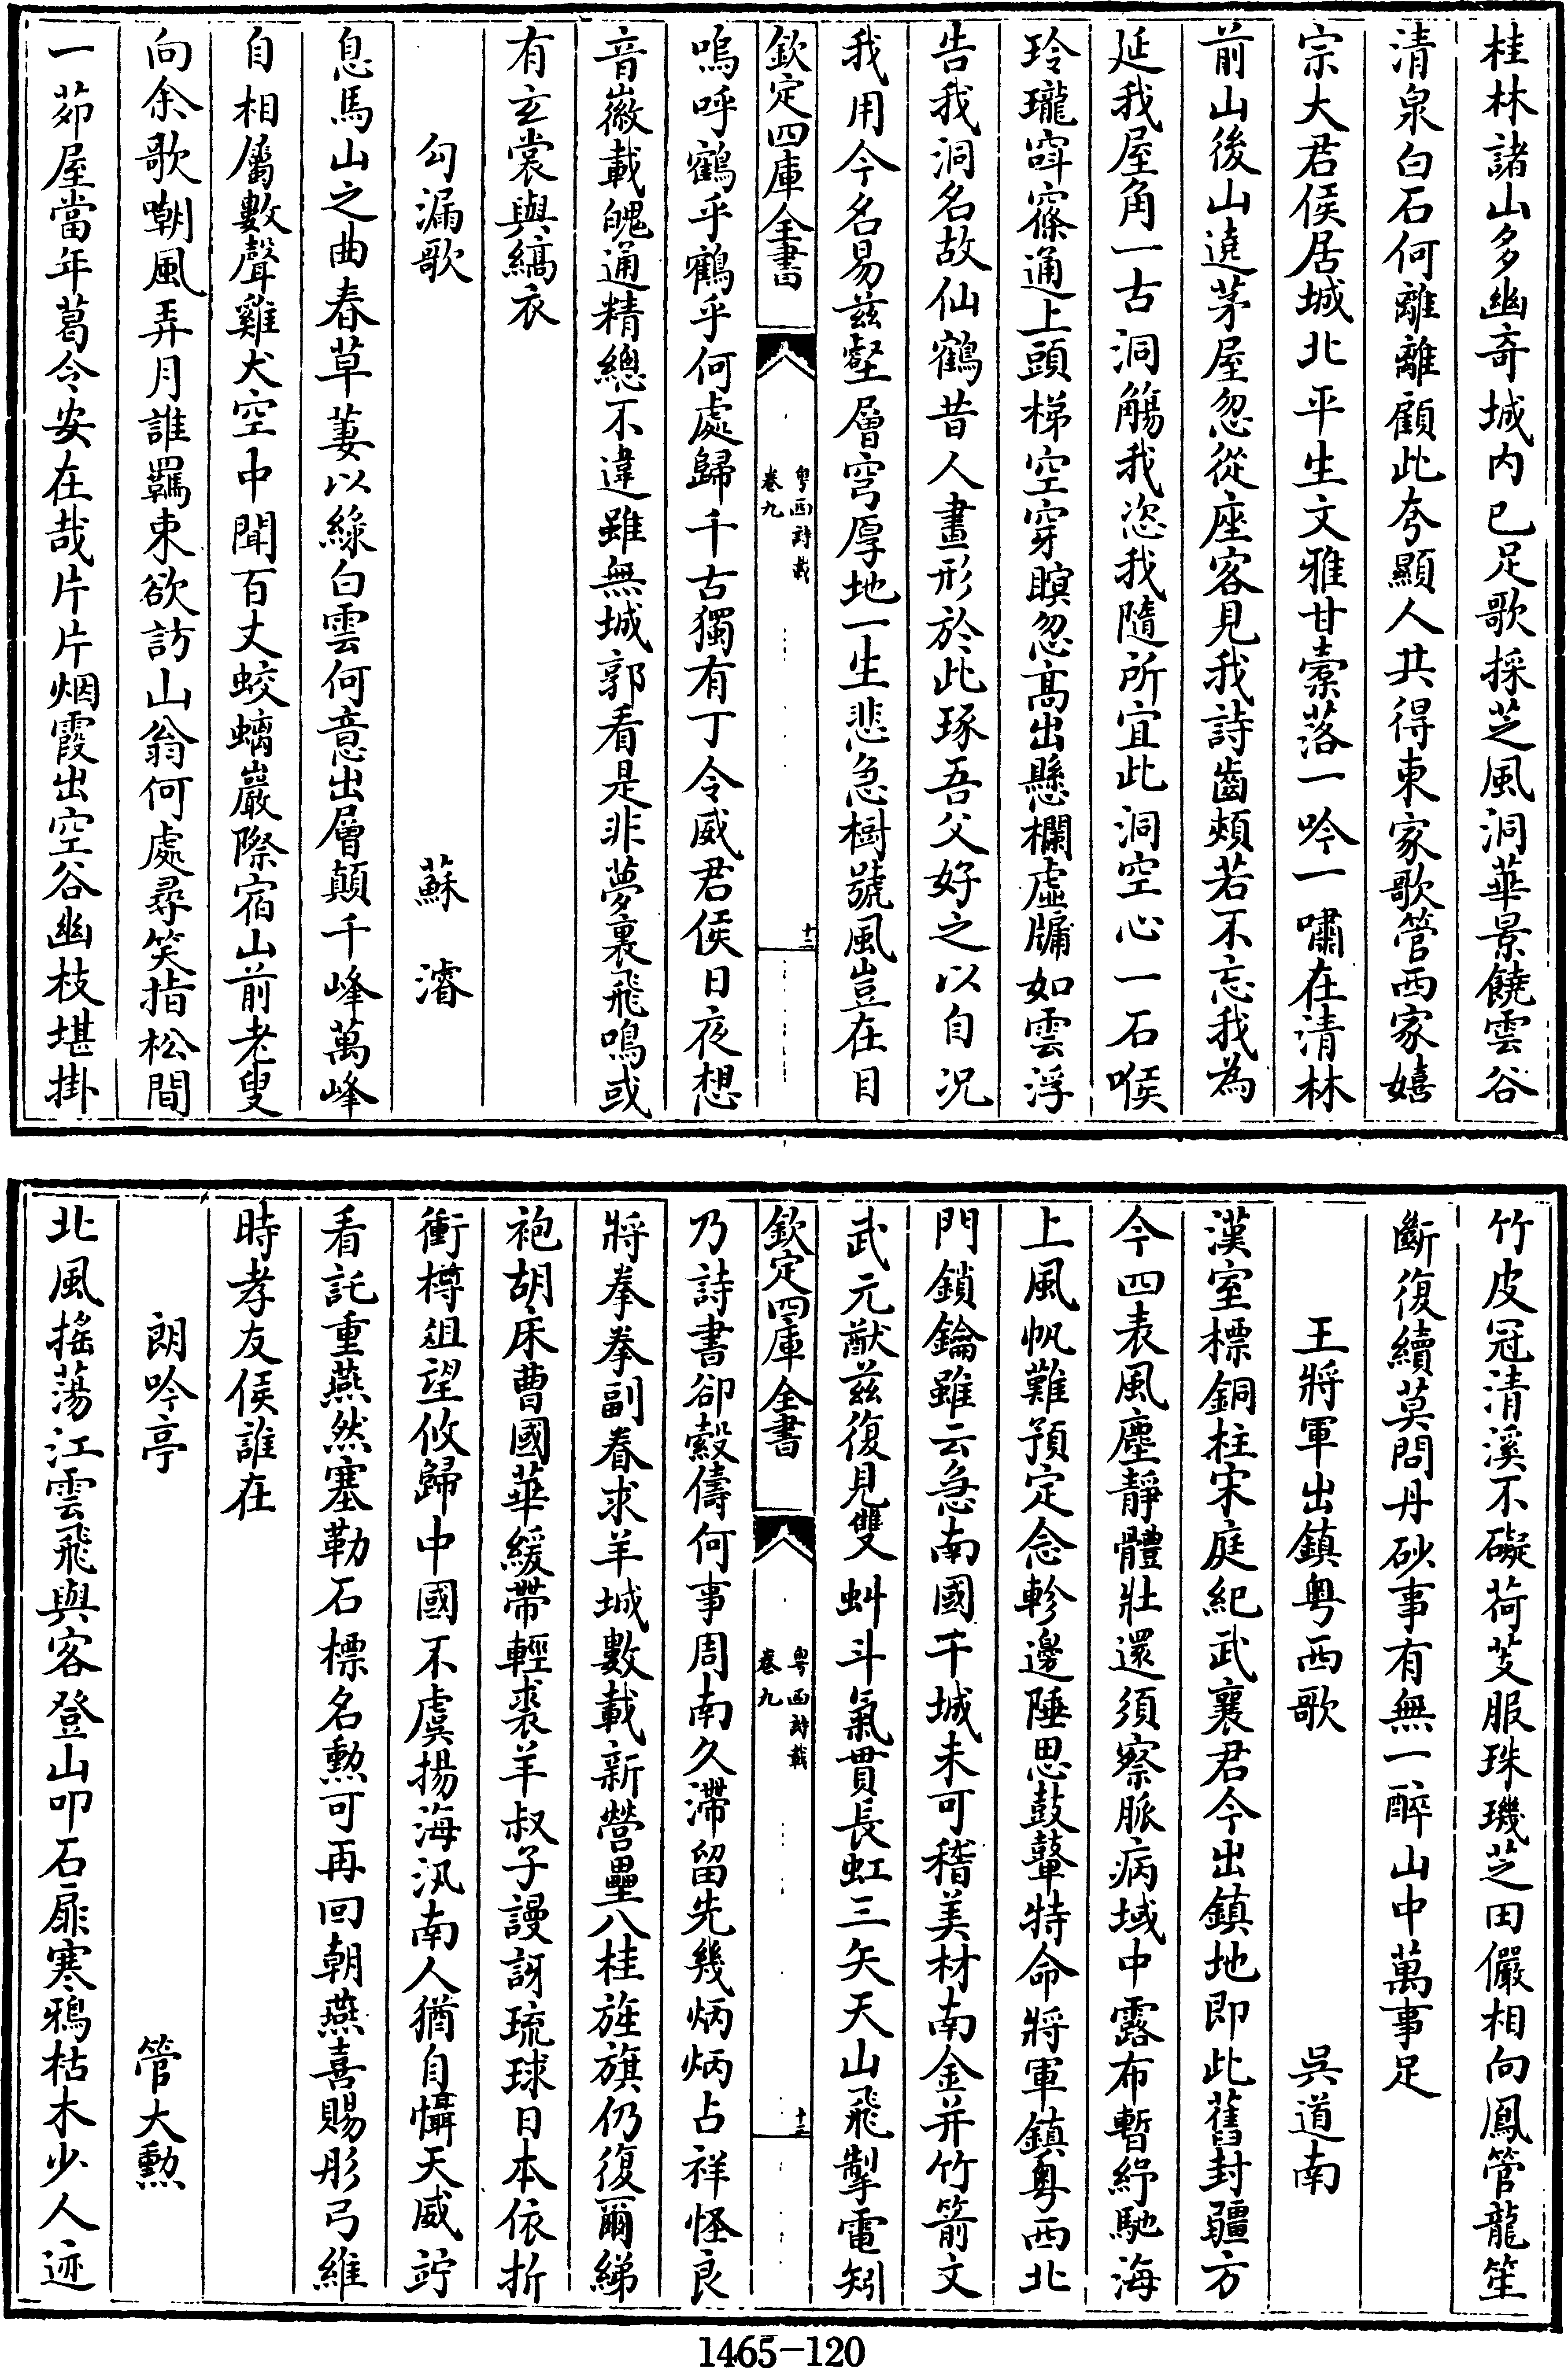 桂林諸山多幽竒城内已足歌採芝風洞華景饒雲谷
清泉白石何離離顧此夸顯人共得東家歌管西家嬉
宗大君侯居城北平生文雅甘槖落一吟一嘯在清林
前山後山遶茅屋忽從座客見我詩齒頰若不忘我為
延我屋角一古洞觴我恣我隨所宜此洞空心一石喉
玲瓏窲窱通上頭梯空穿瞑忽髙出懸欄虛牖如雲浮
告我洞名故仙鶴昔人畫形於此琢吾父好之以自况
我用今名易兹壑層穹厚地一生悲急樹號風豈在目
欽定四庫全書
粤西詩載
卷九
十二
嗚呼鶴乎鶴乎何處歸千古獨有丁令威君侯日夜想
音徽載魄通精總不違雖無城郭看是非夢裏飛鳴或
有玄裳與縞衣
勾漏歌
蘇濬
息馬山之曲春草萋以緑白雲何意出層巔千峰萬峰
自相屬數聲雞犬空中聞百丈蛟螭巖際宿山前老叟
向余歌嘲風弄月誰羈束欲訪山翁何處尋笑指松間
一茆屋當年葛令安在哉片片烟霞出空谷幽枝堪掛
竹皮冠清溪不礙荷芰服珠璣芝田儼相向鳳管龍笙
斷復續莫問丹砂事有無一醉山中萬事足
王將軍出鎮粤西歌
吳道南
漢室標銅柱宋庭紀武襄君今出鎮地即此舊封疆方
今四表風塵靜體壯還須察脈病域中露布暫紓馳海
上風帆難預定念軫邊陲思鼓鼙特命將軍鎮粤西北
門鎖鑰雖云急南國干城未可稽美材南金并竹箭文
武元猷兹復見雙虯斗氣貫長虹三矢天山飛掣電矧
欽定四庫全書
粤西詩載
卷九
十三
乃詩書卻縠儔何事周南久滯留先幾炳炳占祥怪良
將拳拳副眷求羊城數載新營壘八桂旌旗仍復爾綈
袍胡床曹國華緩帶輕裘羊叔子謾訝琉球日本依折
衝樽俎望攸歸中國不虞揚海汛南人猶自慴天威竚
看託重燕然塞勒石標名勲可再回朝燕喜賜彤弓維
時孝友侯誰在
朗吟亭
管大勲
北風搖蕩江雲飛與客登山叩石扉寒鴉枯木少人迹
1465-120